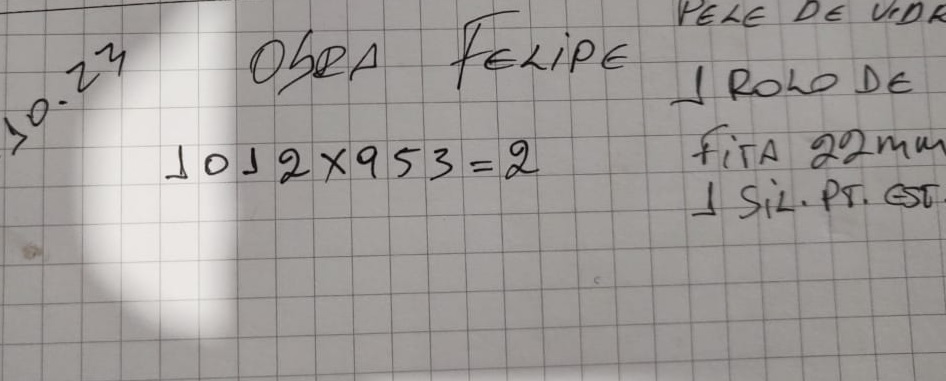 10.24
OBRA FELIPE
1012X953=2
PELE DE VIDR
1 ROLO DE
FITA 22mm
1 SiL. PT. EST.